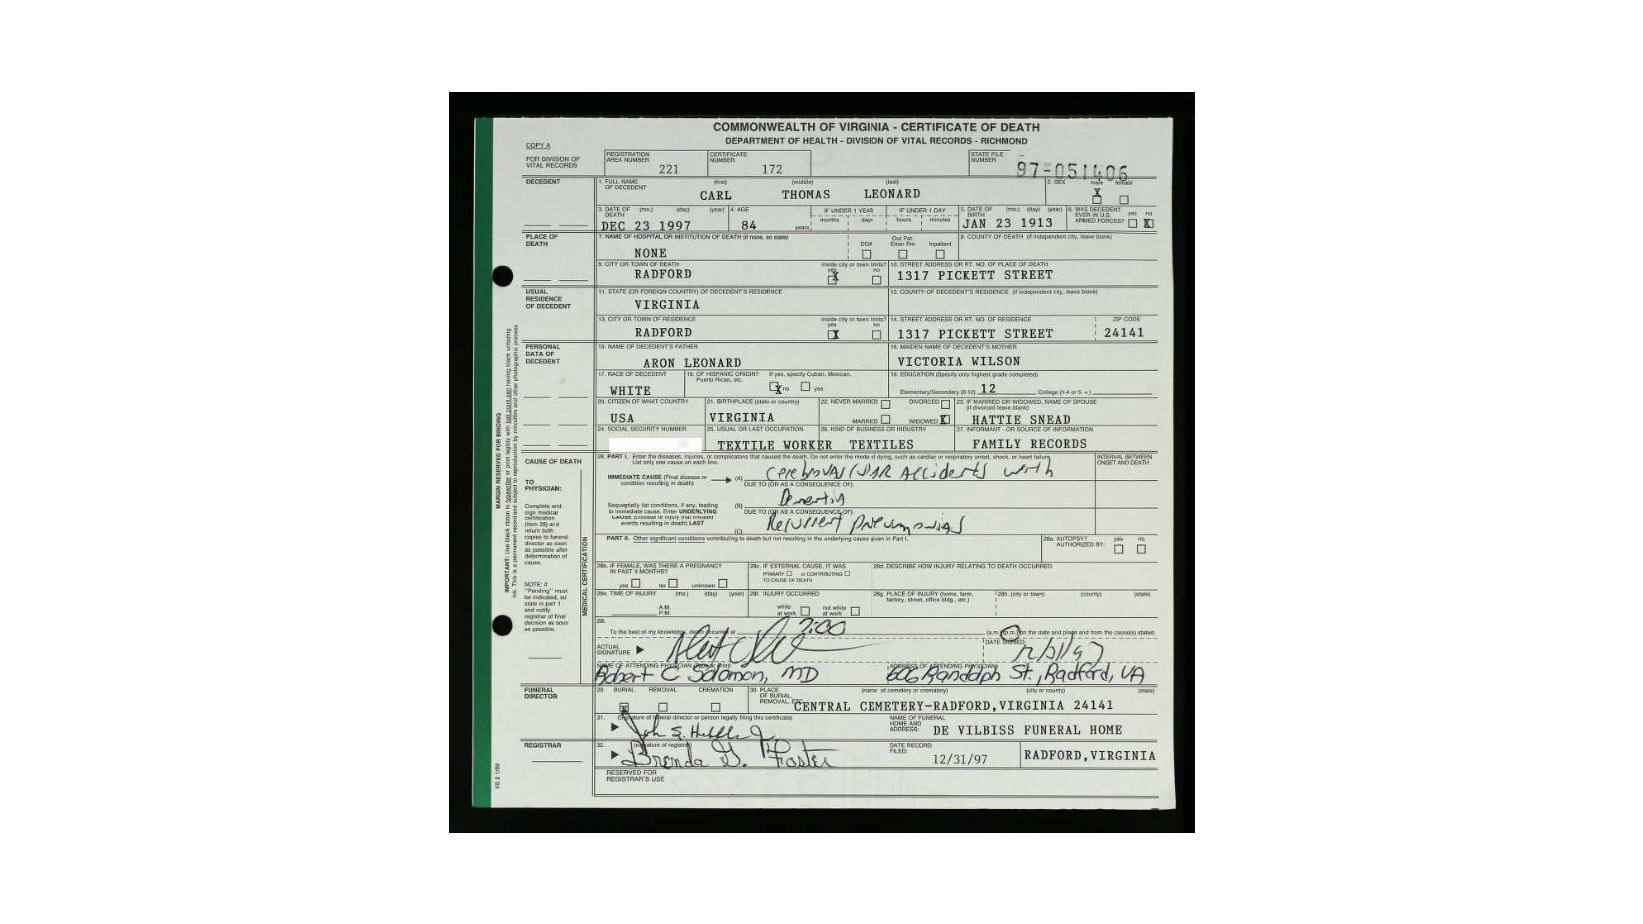 COMMONWEALTH OF VIRGINIA - CERTIFICATE OF DEATH
DEPARTMENT OF HEALTH - DIVISION OF VITAL RECORDS - RICHMOND
COPY A
FOR DIVISION OF VITAL RECORDS
REGISTRATION AREA NUMBER 221
CERTIFICATE NUMBER 172
STATE FILE NUMBER 97-051406
DECEDENT
1. FULL NAME OF DECEDENT (first) (middle) (last)
CARL THOMAS LEONARD
2. SEX male female
X
3. DATE OF DEATH (mo.) (day) (year)
DEC 23 1997
4. AGE
84 years
IF UNDER 1 YEAR months days
IF UNDER 1 DAY hours minutes
5. DATE OF BIRTH (mo.) (day) (year)
JAN 23 1913
6. WAS DECEDENT EVER IN U.S. ARMED FORCES? yes no
X
PLACE OF DEATH
7. NAME OF HOSPITAL OR INSTITUTION OF DEATH (if none, so state)
NONE
DOA Out Pat. Emer Rm Inpatient
8. COUNTY OF DEATH (if independent city, leave blank)
9. CITY OR TOWN OF DEATH
RADFORD
inside city or town limits? yes no
X
10. STREET ADDRESS OR RT. NO. OF PLACE OF DEATH
1317 PICKETT STREET
USUAL RESIDENCE OF DECEDENT
11. STATE (OR FOREIGN COUNTRY) OF DECEDENT'S RESIDENCE
VIRGINIA
12. COUNTY OF DECEDENT'S RESIDENCE (if independent city, leave blank)
13. CITY OR TOWN OF RESIDENCE
RADFORD
inside city or town limits? yes no
X
14. STREET ADDRESS OR RT. NO. OF RESIDENCE
1317 PICKETT STREET
ZIP CODE
24141
PERSONAL DATA OF DECEDENT
15. NAME OF DECEDENT'S FATHER
ARON LEONARD
16. MAIDEN NAME OF DECEDENT'S MOTHER
VICTORIA WILSON
17. RACE OF DECEDENT
WHITE
18. OF HISPANIC ORIGIN? If yes, specify Cuban, Mexican, Puerto Rican, etc.
X no yes
19. EDUCATION (Specify only highest grade completed)
Elementary/Secondary (0-12) 12 College (1-4 or 5 +)
20. CITIZEN OF WHAT COUNTRY
USA
21. BIRTHPLACE (state or country)
VIRGINIA
22. NEVER MARRIED DIVORCED
MARRIED WIDOWED X
23. IF MARRIED OR WIDOWED, NAME OF SPOUSE (if divorced leave blank)
HATTIE SNEAD
24. SOCIAL SECURITY NUMBER
25. USUAL OR LAST OCCUPATION
TEXTILE WORKER
26. KIND OF BUSINESS OR INDUSTRY
TEXTILES
27. INFORMANT - OR SOURCE OF INFORMATION
FAMILY RECORDS
CAUSE OF DEATH
28. PART I. Enter the diseases, injuries, or complications that caused the death. Do not enter the mode of dying, such as cardiac or respiratory arrest, shock, or heart failure.
List only one cause on each line.
INTERVAL BETWEEN ONSET AND DEATH
IMMEDIATE CAUSE (Final disease or condition resulting in death)
(A) Cerebrovascular Accidents with
DUE TO (OR AS A CONSEQUENCE OF):
Sequentially list conditions, if any, leading to immediate cause. Enter UNDERLYING CAUSE (Disease or injury that initiated events resulting in death) LAST
(B) Dementia
DUE TO (OR AS A CONSEQUENCE OF):
(C) Recurrent Pneumonias
TO PHYSICIAN:
Complete and sign medical certification (item 28) and return both copies to funeral director as soon as possible after determination of cause.
NOTE: if "Pending" must be indicated, so state in part 1 and notify registrar of final decision as soon as possible.
MEDICAL CERTIFICATION
PART II. Other significant conditions contributing to death but not resulting in the underlying cause given in Part I.
28a. AUTOPSY? yes no
AUTHORIZED BY:
28b. IF FEMALE, WAS THERE A PREGNANCY IN PAST 3 MONTHS?
yes no unknown
28c. IF EXTERNAL CAUSE, IT WAS
PRIMARY or CONTRIBUTING
TO CAUSE OF DEATH
28d. DESCRIBE HOW INJURY RELATING TO DEATH OCCURRED
28e. TIME OF INJURY (mo.) (day) (year)
A.M.
P.M.
28f. INJURY OCCURRED
while at work not while at work
28g. PLACE OF INJURY (home, farm, factory, street, office bldg., etc.)
28h. (city or town) (county) (state)
28i.
To the best of my knowledge, death occurred at 2:00 (a.m.) (p.m.) on the date and place and from the cause(s) stated.
ACTUAL SIGNATURE
DATE SIGNED:
12/31/97
NAME OF ATTENDING PHYSICIAN (type or print)
Robert C Solomon, MD
ADDRESS OF ATTENDING PHYSICIAN
606 Randolph St., Radford, VA
FUNERAL DIRECTOR
29. BURIAL REMOVAL CREMATION
X
30. PLACE OF BURIAL, REMOVAL, ETC. (name of cemetery or crematory) (city or county) (state)
CENTRAL CEMETERY-RADFORD,VIRGINIA 24141
31. (Signature of funeral director or person legally filing this certificate)
NAME OF FUNERAL HOME AND ADDRESS:
DE VILBISS FUNERAL HOME
REGISTRAR
32. (signature of registrar)
Brenda G. Foster
DATE RECORD FILED:
12/31/97
RADFORD,VIRGINIA
RESERVED FOR REGISTRAR'S USE
MARGIN RESERVED FOR BINDING
VS 2 1/89